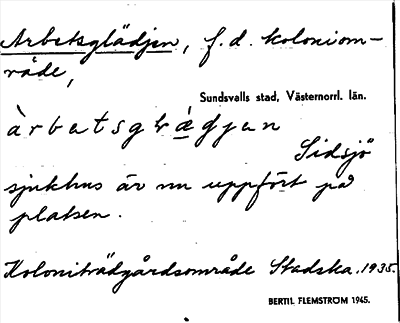 Arbetsglädjen, f.d. koloniom-
råde,
Sundsvalls stad, Västernorrl. län.
àrbatsgl
Sidsjö
sjukhus är nu uppfört på
platsen.
Koloniträdgårdsområde Stadska. 1935.
BERTIL FLEMSTRÖM 1945.